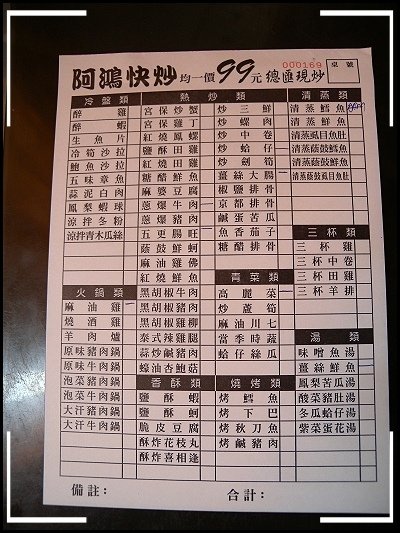 阿鴻快炒 均一價99元總匯現炒
000169
桌號
冷盤類
醉雞
醉蝦
生魚片
冷筍沙拉
鮑魚沙拉
五味章魚
蒜泥白肉
鳳梨蝦球
涼拌冬粉
涼拌青木瓜絲
火鍋類
麻油雞
燒酒雞
羊肉爐
原味豬肉鍋
原味牛肉鍋
泡菜豬肉鍋
泡菜牛肉鍋
大汗豬肉鍋
大汗牛肉鍋
熱炒類
宮保炒蟹
宮保雞丁
紅燒鳳螺
鹽酥田雞
糖醋鮮魚
麻婆豆腐
蔥爆牛肉
蔥爆豬肉
五更腸旺
蔭鼓鮮蚵
麻油雞佛
紅燒鮮魚
黑胡椒牛肉
黑胡椒豬肉
黑胡椒雞柳
泰式辣雞腿
蒜炒鹹豬肉
蠔油杏鮑菇
香酥類
鹽酥蝦
鹽酥蚵
脆皮豆腐
酥炸花枝丸
酥炸喜相逢
炒三鮮
炒螺肉
炒中卷
炒蛤仔
炒劍筍
薑絲大腸
椒鹽排骨
京都排骨
鹹蛋苦瓜
魚香茄子
糖醋排骨
青菜類
高麗菜
炒蘆筍
麻油川七
當季時蔬
蛤仔絲瓜
燒烤類
烤鱈魚
烤下巴
烤秋刀魚
烤鹹豬肉
清蒸類
清蒸鱈魚
清蒸鮮魚
清蒸虱目魚肚
清蒸蔭鼓鱈魚
清蒸蔭鼓鮮魚
清蒸蔭鼓虱目魚肚
三杯類
三杯雞
三杯中卷
三杯田雞
三杯羊排
湯類
味噌魚湯
薑絲鮮魚
鳳梨苦瓜湯
酸菜豬肚湯
冬瓜蛤仔湯
紫菜蛋花湯
備註：
合計：